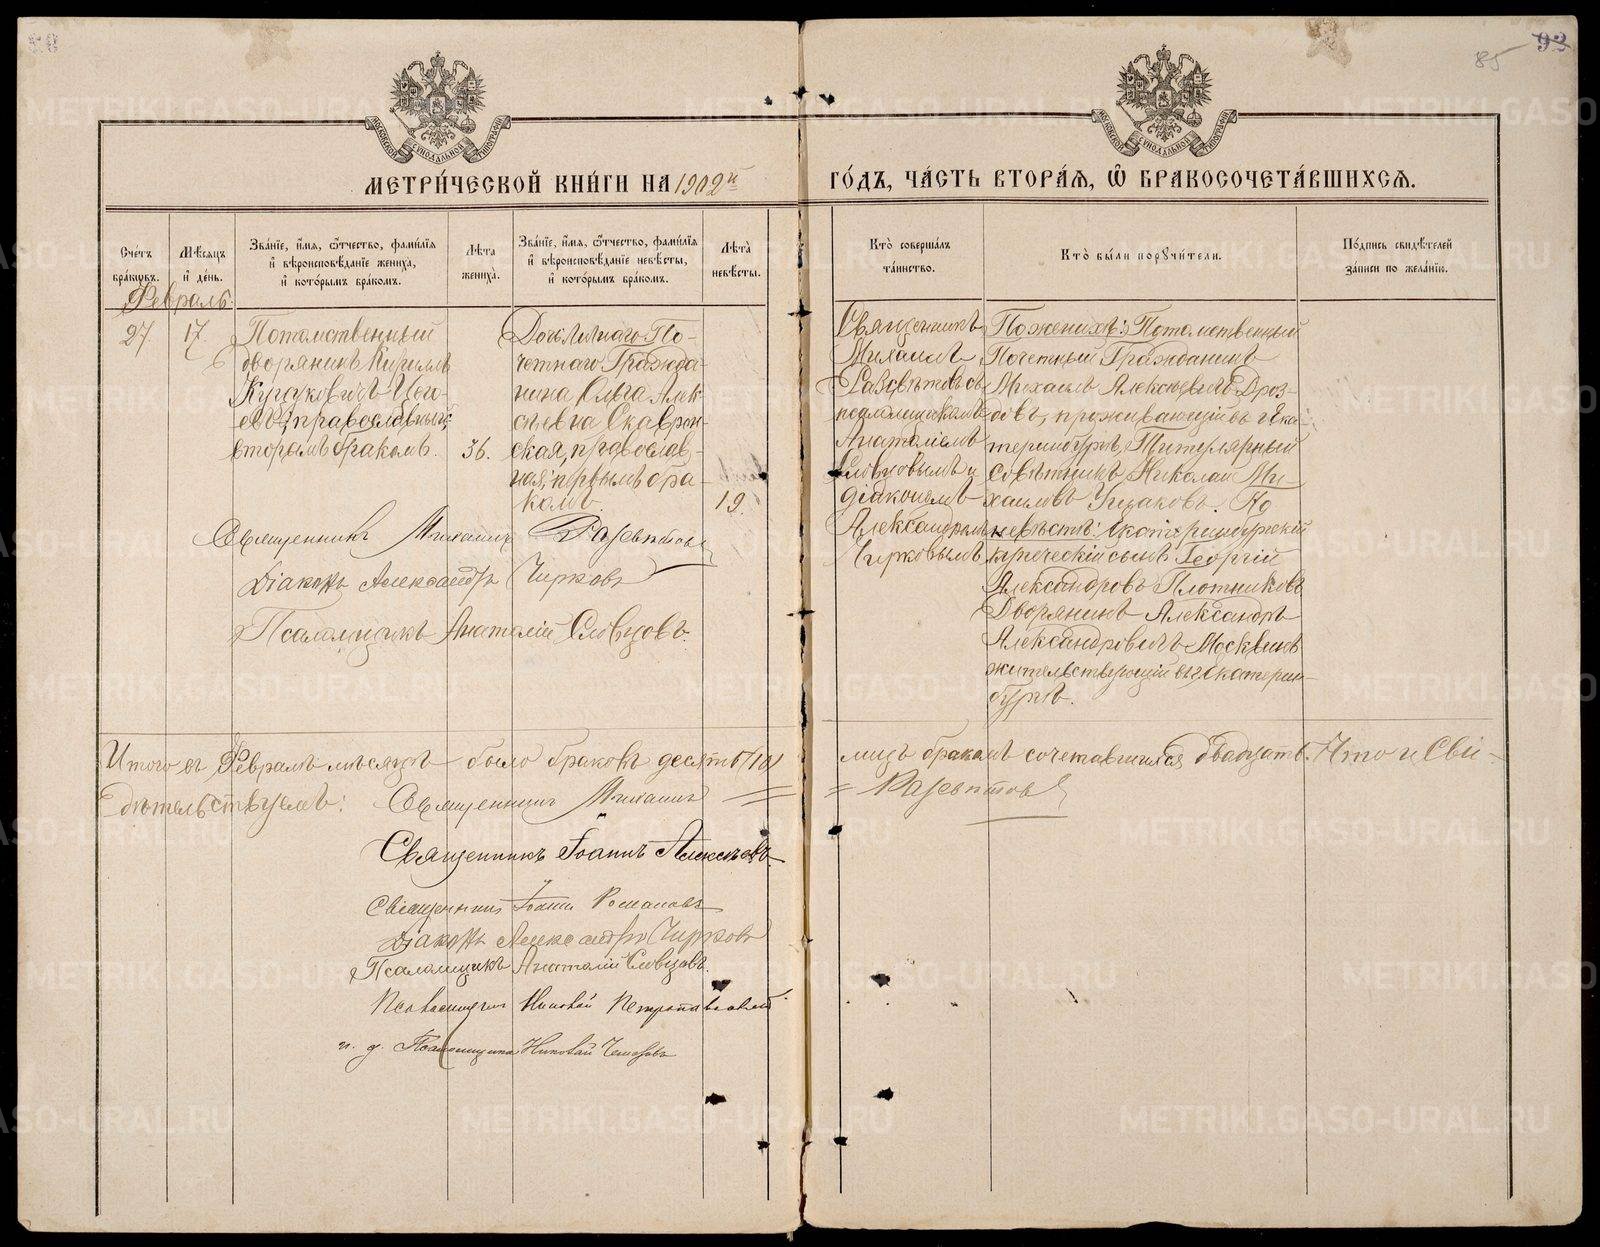 93
85
МОСКОВСКОЙ СУНОДАЛЬНОЙ ТИПОГРАФІИ
МОСКОВСКОЙ СУНОДАЛЬНОЙ ТИПОГРАФІИ
МЕТРИ́ЧЕСКОЙ КНИ́ГИ НА 1902й ГО́ДЪ, ЧА́СТЬ ВТОРА́Я, Ѽ БРАКОСОЧЕТА́ВШИХСЯ.
Счетъ
браковъ.
Мѣсяцъ
и день.
Званіе, имя, отчество, фамилія
и вѣроисповѣданіе жениха,
и которымъ бракомъ.
Лѣта
жениха.
Званіе, имя, отчество, фамилія
и вѣроисповѣданіе невѣсты,
и которымъ бракомъ.
Лѣта
невѣсты.
Кто совершалъ
таинство.
Кто были поручители.
Подпись свидѣтелей
записи по желанію.
Февраль.
27
17
Потомственный
дворянинъ Кириллъ
православный,
вторымъ бракомъ.
36.
Дочь Личнаго По-
четнаго Гражда-
нина Ольга Алек-
сѣевна Скаврон-
ская, православ-
ная, первымъ бра-
комъ.
19.
Священникъ
Михаилъ
псаломщикомъ
Анатоліемъ
Словцовымъ и
діакономъ
Александромъ
Чирковымъ
По женихѣ: Потомственный
Почетный Гражданинъ
Михаилъ Алексѣевичъ Дроз-
довъ, проживающій въ г. Ека-
теринбургѣ, Титулярный
совѣтникъ Николай Ми-
хаиловъ Ушаковъ. По
невѣстѣ: Екатеринбургскій
купеческій сынъ Георгій
Александровъ Плотниковъ
Дворянинъ Александръ
Александровичъ Москвинъ
жительствующій въ г. Екатерин-
бургѣ.
Священникъ Михаилъ
Діаконъ Александръ Чирковъ
Псаломщикъ Анатолій Словцовъ.
Итого въ Февралѣ мѣсяцѣ было браковъ десять /10/ лицъ бракомъ сочетавшихся двадцать. Что и Сви-
дѣтельствуемъ: Священникъ Михаилъ
Священникъ Іоаннъ Алексѣевъ
Священникъ Іоаннъ Романовъ
Діаконъ Александръ Чирковъ
Псаломщикъ Анатолій Словцовъ.
Псаломщикъ Николай Петропавловскій
и. д. Псаломщика Николай
METRIKI.GASO-URAL.RU